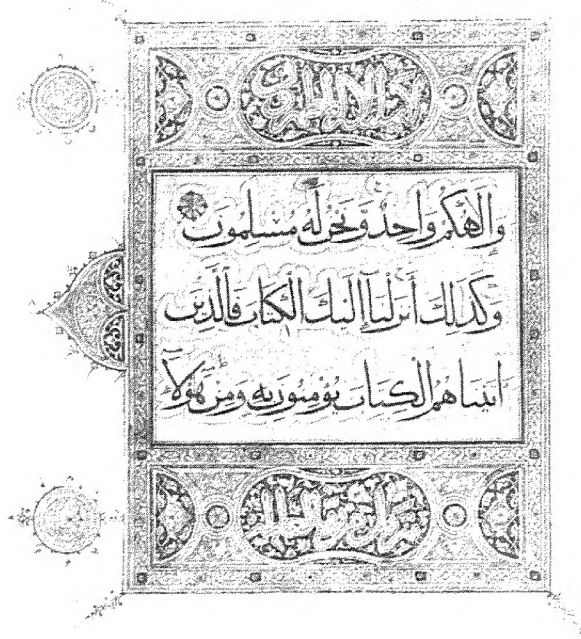 وَإِلَٰهُكُمْ وَاحِدٌ وَنَحْنُ لَهُ مُسْلِمُونَ
وَكَذَٰلِكَ أَنزَلْنَا إِلَيْكَ الْكِتَابَ فَالَّذِينَ
آتَيْنَاهُمُ الْكِتَابَ يُؤْمِنُونَ بِهِ وَمِنْ هَٰؤُلَاءِ